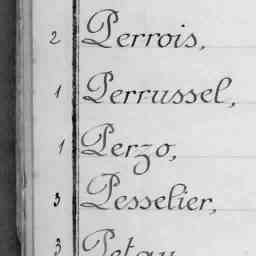 2 Perrois,
1 Perrussel,
1 Perzo,
3 Pesselier,
3 Petau